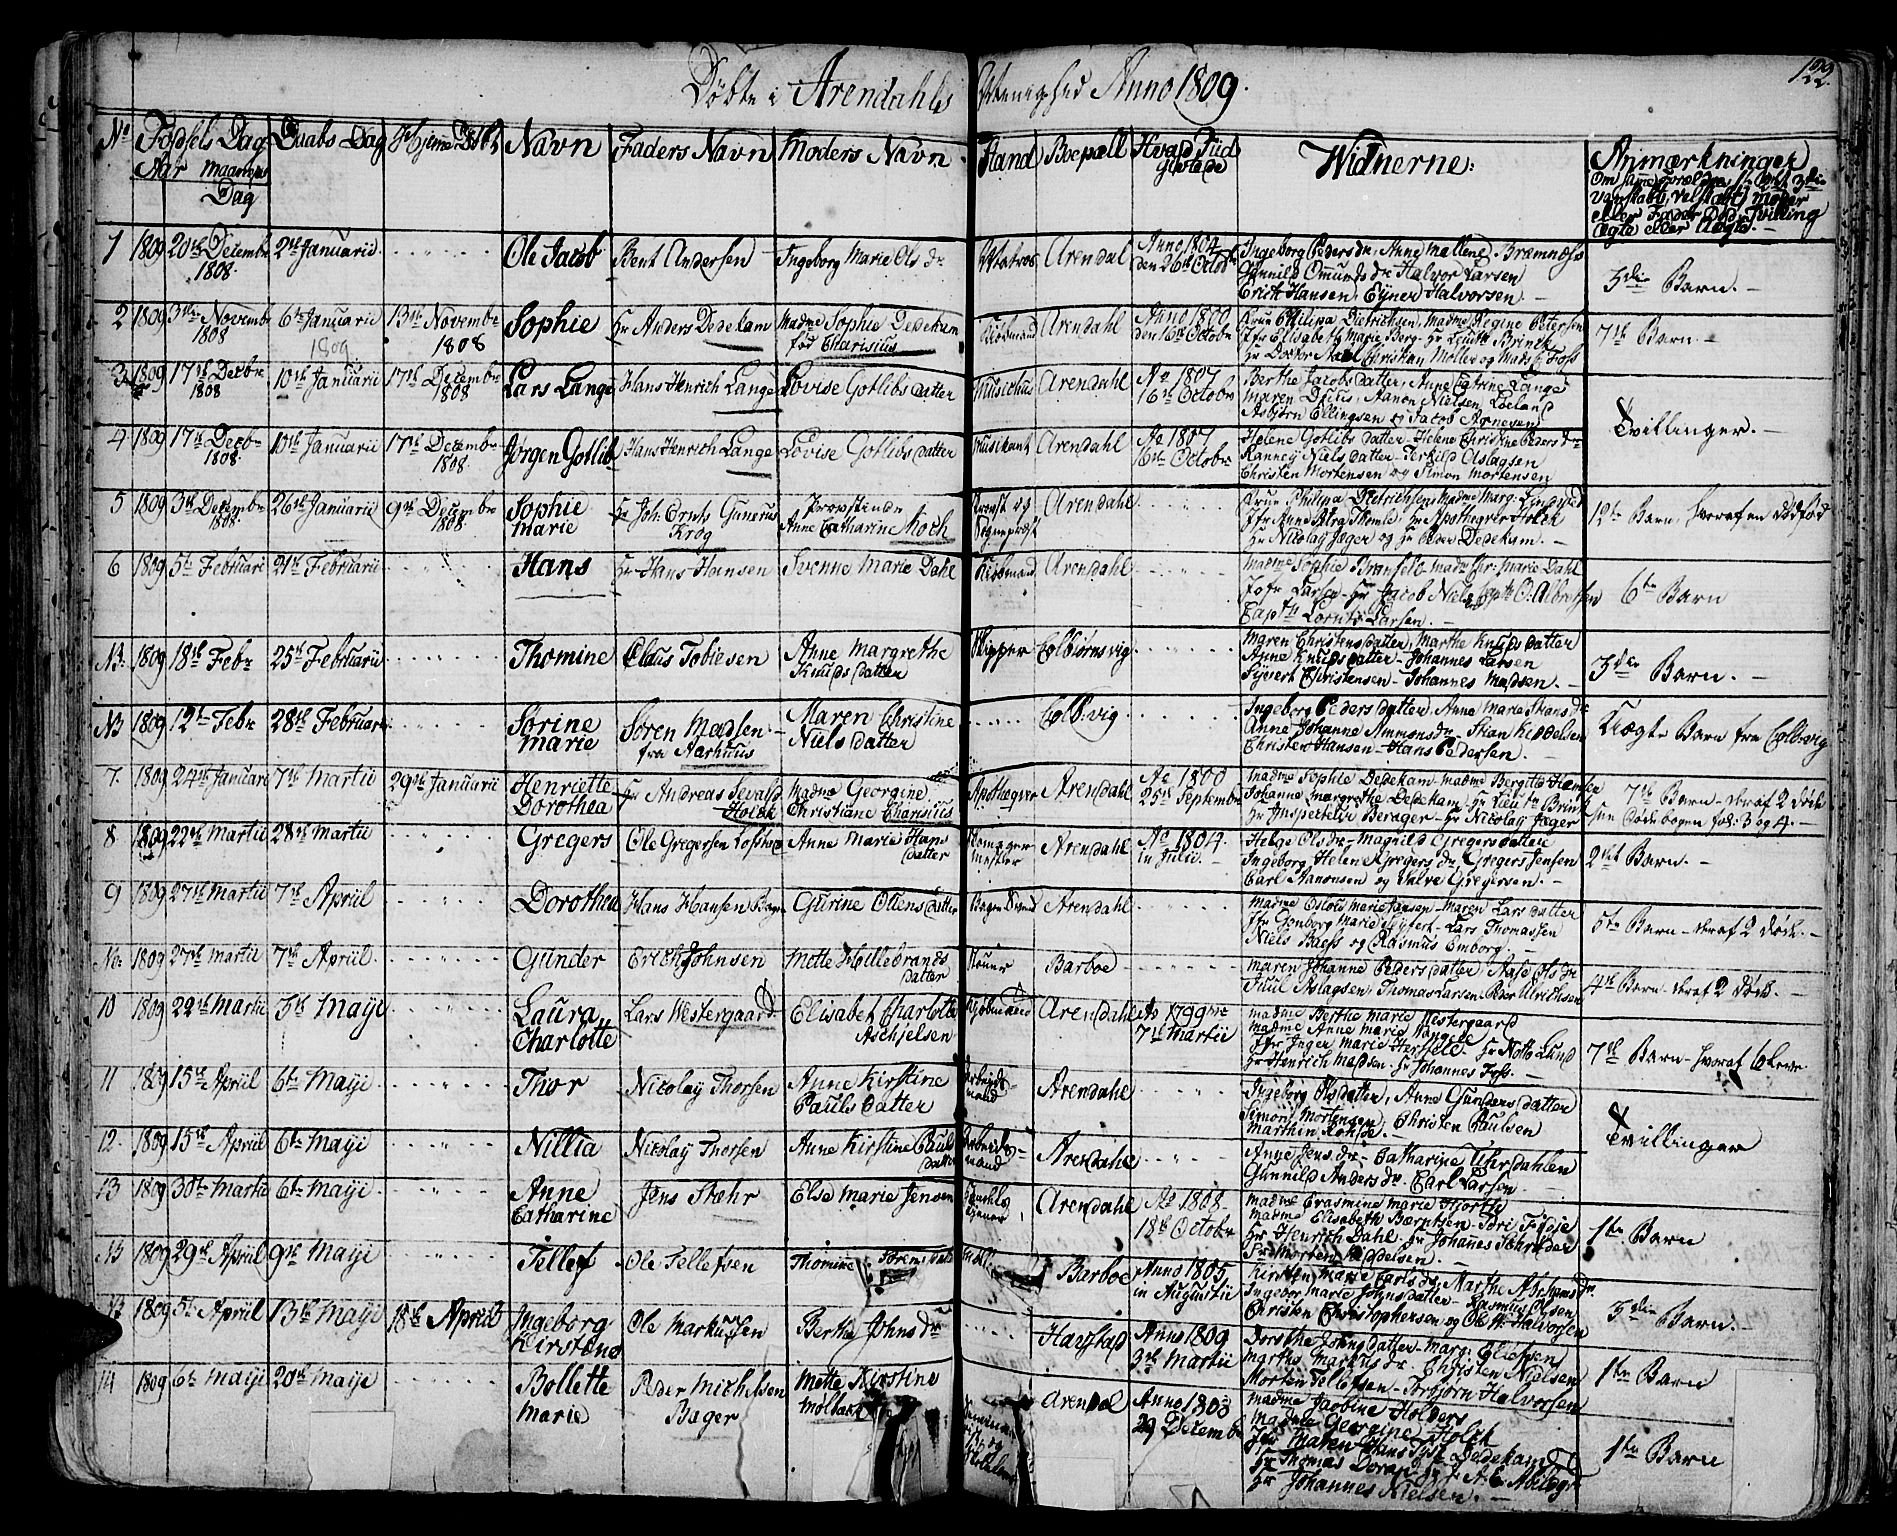 122.
Døbte i Arendahls Menighed Anno 1809.
No Fødsels Dag Daabs-Dag Hjemme Døbt Navn Faders Navn Moders Navn Stand Boepæl Hvad Tid Widnerne: Anmærkninger
Aar maaneds Dag
1 1809 20de Decembr 1808 2den Januarii Ole Jacob Bent Andersen Ingeborg Marie Ols dr Matros Arendal Anno 1804 den 26de Octobr Ingeborg Peders dr, Anne Mallene Bromnæss
Gunnild Omunds dr Halvor Larsen
Erich Hansen, Ejner Halvorsen. 3die Barn.
2 1809 3die Novembr 1808 6te Januarii 1809 13de Novembr 1808 Sophie Hr Anders Dedekam Madme Sophie Dedekam fød Charisius Kiøbmand Arendahl Anno 1800 den 16de Octobr Frue Philipa Dietrichsen, Madme Regine Petersen
Jfr Elisabeth Marie Berg - Hr Leudtn Brinck
Hr Doctor Christian Møller og Mads C. Foss 7de Barn.
3 1809 17de Decbr 1808 10de Januarii 17de Decembr 1808 Lars Lange Hans Henrich Lange Lovise Gotlibs datter Musichus Arendahl Ao 1807 16de Octobr Berthe Jacobs datter, Anne Catrine Lange
Maren Duus, Aanon Nielsen Loeland
Asbjørn Ellingsen og Jacob Arnesen
Tvillinger.
4 1809 17de Decbr 1808. 10de Januarii 17de Decembr 1808. Jørgen Gotlib Hans Henrich Lange Lovise Gotlibs datter Musikant Arendahl Ao 1807 16de Octobr Helene Gotlibs datter - Helene Christine Peders dr
Ranney Niels datter - Terkild Aslagsen
Christen Mortensen og Simon Mortensen
5 1809 3de Decembr 1808. 26de Januarii 9de Decembr 1808. Sophie Marie Hr Joh. Ernst Gunerus Krog Provstinde Anne Catharine Koch Provst og Sognepræst Arendahl Frue Philipa Dietrichsen Madme Marg:
Jfr Anne Borg Themld, Hr Apothegrer Holck
Hr Nicolay Jæger og Hr Peder Dedekam. 12te Barn, hvoraf en dødfød
6 1809 5te Februari 21de Februarii Hans Hr Hans Hansen Svenne Marie Dahl Kiøbmand Arendahl Madme Sophie Brønfeld - Madm Chr: Marie Dahl
Jofr Larsen - Hr Jacob Niels Capt: O: Albretsen
Captn Lorents Larsen. 6te Barn
N3. 1809 18de Febr 25de Februarii Thomine Claus Tobiesen Anne Margrethe Knuds datter Skipper Colbiørnsvig Maren Christens datter, Marthe Knuds datter
Anne Knuds datter - Johannes Larsen
Syvert Christensen - Johannes Madsen. 3die Barn.
N3 1809 12te Febr 28de Februarii Sørine Marie Søren Madsen fra Aarhuus Maren Christine Niels datter Colb:vig Ingeborg Peders datter, Anne Marie Hans dr
Anne Johanne Ammons dr - Stian Keddelsen
Christen Hansen - Hans Pedersen. Uægte Barn fra Colb:vig
7. 1809 24de Januari 7de Martii 29de Januarii Henriette Dorothea Hr Andreas Sevald Holck Madme Georgine Christiane Charisius Apotheger Arendahl Ao 1800 25de Septembr Madme Sophie Dedekam - Madme Bergite Hansen
Johanne Margrethe Dedekam - Hr Lieutn Brink
Hr Inspecteur Berager - Hr Nicolay Jæger 7de Barn - deraf 2 døde
8 1809 22de Martii 28de Martii Gregers Ole Gregersen Anne Marie Hans datter Arendahl Ao 1804. in Julii. Helge Ols dr - Magnild Gregers datter
Ingeborg Helene Gregers dr Gregers Jensen
Carl Aanonsen og Salve Gregersen. 2det Barn.
9 1809 27de Martii 7de April Dorothea Hans Hansen Bager Gurine Ottens datter Bager Svend Arendahl Madme Marie Jansen - Maren Lars datter
Jfr Gonborg Marie Seyfert - Lars Thomassen
Niels Baess og Rasmus Emborg. 5te Barn - deraf 2 døde.
No: 1809 27de Martii 7de April Gunder Erich Johnsen Mette Hillebrands datter Barboe Maren Johanne Peders datter Aase Ols dr
Juul Aslagsen, Thomas Larsen Peder Ulrichsen 4de Barn - deraf 2 døde.
10 1809 22de Martii 3de Maji Laura Charlotte Lars Westergaard Elisabet Charlotte Aschjelsen Kjøbmand Arendahl Ao 1799 7de Martii Madme Berthe Marie Westergaard
Madme Anne Marie
Jfr Inger Marie Herfeldt. Hr Notto Lund
Hr Henrich Madsen. Hr Johannes Foss. 7de Barn - hvoraf 6 leve
11 1809 15de April 6te Maji Thor Nicolay Thorsen Anne Kirstine Pauls datter Arbeids mand Arendahl Ingeborg Ols datter, Anne Gunders datter
Simon Mortensen, Christen Paulsen
Marthin Rohde.
Tvillinger
12. 1809 15de April 6te Maji Nillia Nicolay Thorsen Anne Kirstine Pauls datter Arbeids mand Arendahl Ange Jens dr - Catharine Uhrdahlen
Gunnild Anders dr - Carl Larsen.
13 1809 30te Martii 6te Maji Anne Catharine Jens Stæhr Else Marie Jensen Arendahl Ao 1808. 18de Octobr Madme Erasmine Marie Hjorthe
Madme Elisabeth Bærntsen Bri Tveje
Hr Henrich Dahl, Hr Johannes Schrøder
Sr Morten Peddelsen. 1te Barn
N3 1809 29de April 9de Maji Tellef Ole Tellefsen Thomine Sørens datter Barboe Anno 1805 in Augustii Kirsten Marie Carls dr, Marthe Abrhams dr
Ingebor Marie Johns datter - Rasmus Olsen
Christen Christophersen og Ole H: Halvorsen 3die Barn.
N3 1809 5te April 13de Maji 18de April Ingeborg Kirstine Ole Markussen Berthe Johns dr Havstad Anno 1809 3de Martii Dorothe Johns datter - Marg: Eliesen
Marthe Markus dr Christen Nielsen
Morten Tellefsen - Torbjørn Halvorsen 1te Barn
14 1809 6te Maji 20de Maji Bollette Marie Peder Michelsen Bager Mette Kirstine Arendal Anno 1808 29 Decembr Madme Jacobine Holders
Madme Georgine Holck
Jfr Maren Hans Dedekam
Hr Thomas Hr A: E. Abildgr
Hr Johannes Nielsen. 1te Barn